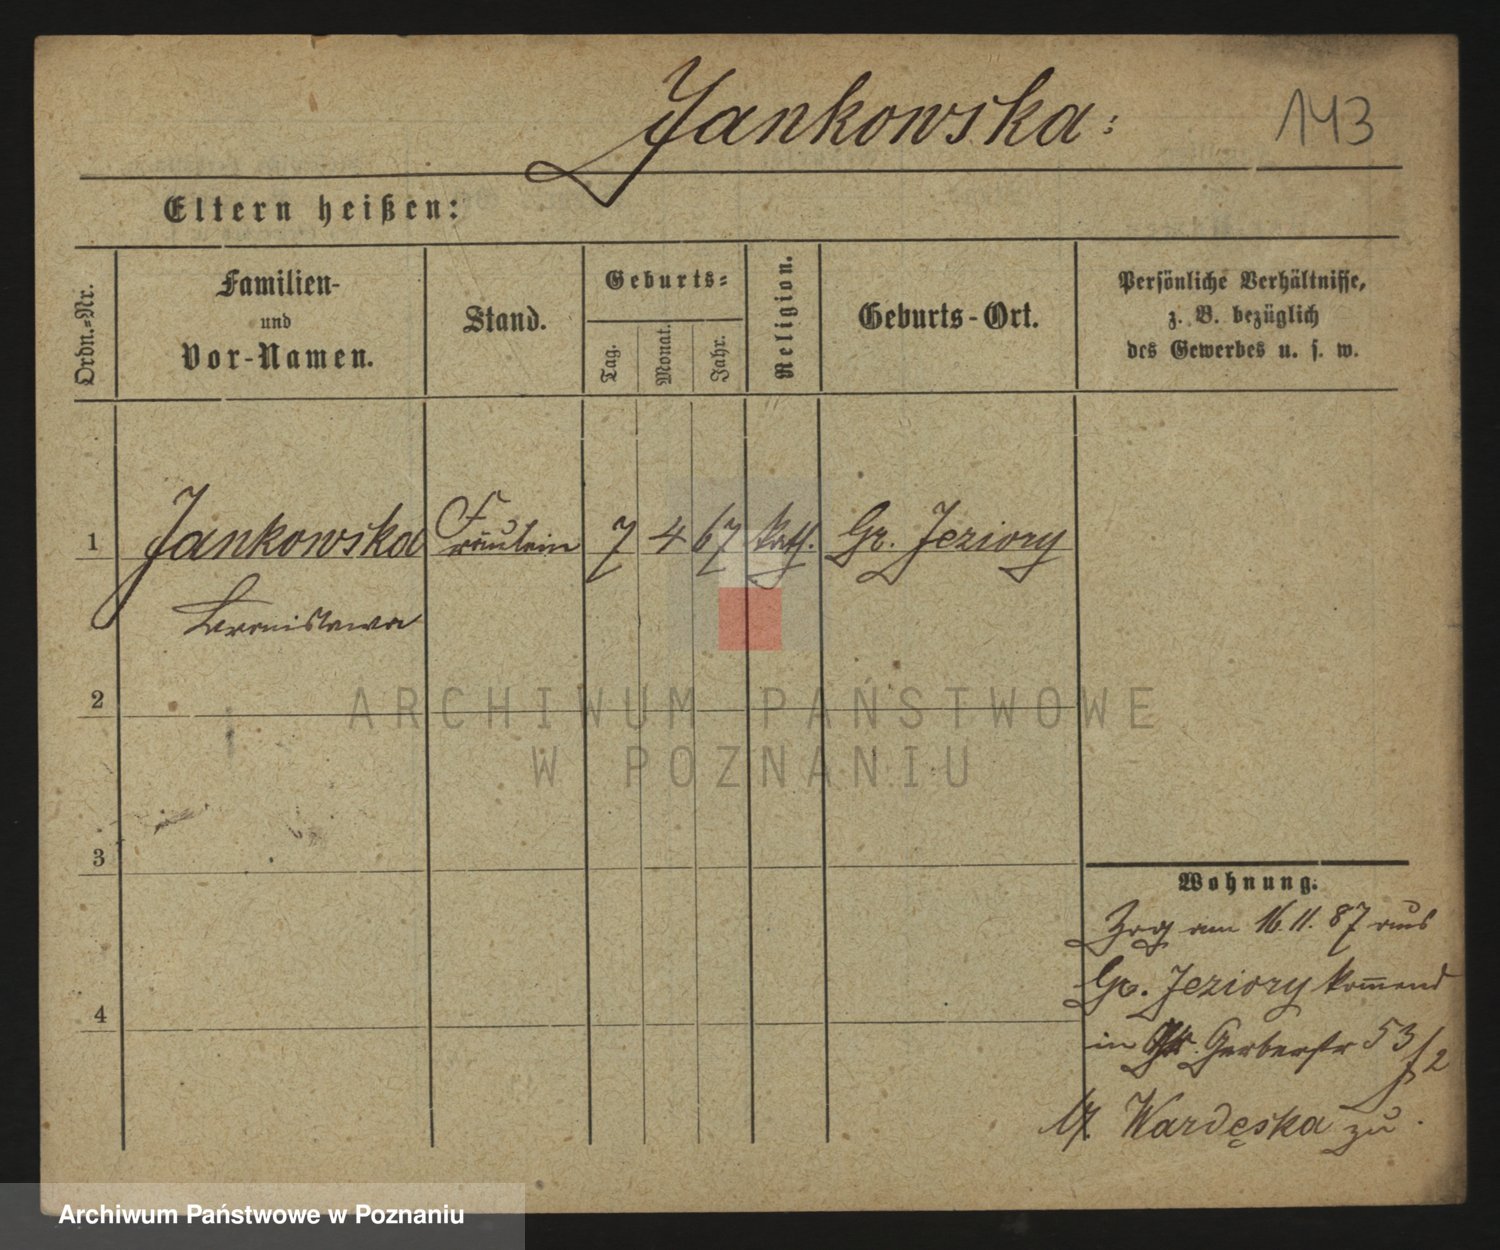 Jankowska:
143
Eltern heißen:
Ordn.-Nr.
Familien-
und
Vor-Namen.
Stand.
Geburts-
Tag.
Monat.
Jahr.
Religion.
Geburts-Ort.
Persönliche Verhältnisse,
z. B. bezüglich
des Gewerbes u. s. w.
1 Jankowska Fräulein 7 4 67 kath. Gr. Jeziory
Bronislawa
2
ARCHIWUM PAŃSTWOWE
W POZNANIU
3
4
Wohnung.
Zog am 16.11.87 aus
Gr. Jeziory komend
in Gr. Gerberstr 53
2
Wardęska zu
Archiwum Państwowe w Poznaniu